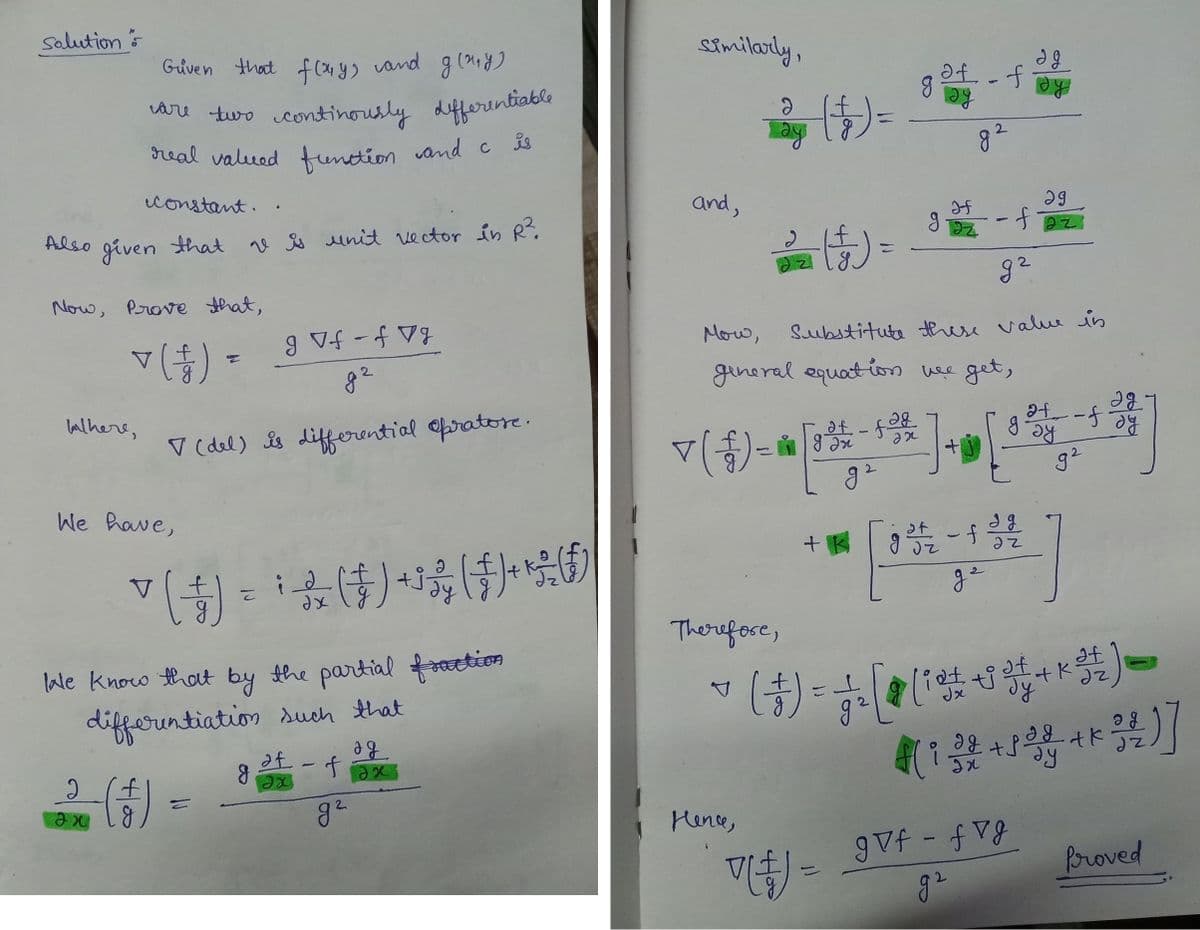 Solution :
Given that f(x,y) and g(x,y)
are two continously differentiable
real valued function and c is
constant. .
Also given that v is unit vector in R².
Now, Prove that,
∇(f/g) = (g ∇f - f ∇g)/g²
Where,
∇ (del) is differential opratore.
We have,
∇(f/g) = i ∂/∂x (f/g) + j ∂/∂y (f/g) + k ∂/∂z (f/g)
We know that by the partial fraction
differentiation such that
∂/∂x (f/g) = (g ∂f/∂x - f ∂g/∂x)/g²
Similarly,
∂/∂y (f/g) = (g ∂f/∂y - f ∂g/∂y)/g²
and,
∂/∂z (f/g) = (g ∂f/∂z - f ∂g/∂z)/g²
Now, Substitute these value in
general equation we get,
∇(f/g) = i [(g ∂f/∂x - f ∂g/∂x)/g²] + j [(g ∂f/∂y - f ∂g/∂y)/g²]
+ k [(g ∂f/∂z - f ∂g/∂z)/g²]
Therefore,
∇(f/g) = 1/g² [g (i ∂f/∂x + j ∂f/∂y + k ∂f/∂z) -
f(i ∂g/∂x + j ∂g/∂y + k ∂g/∂z)]
Hence,
∇(f/g) = (g∇f - f∇g)/g² Proved